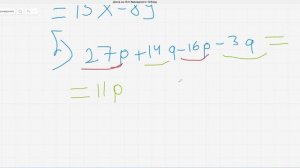 = 15x-8y
б) 27p+14q-16p-3q=
=11p